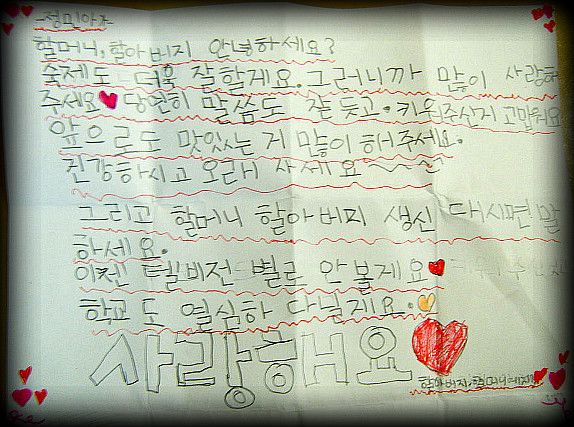 -정민아-
할머니, 할아버지 안녕하세요?
숙제도 더욱 잘할게요. 그러니까 많이 사랑해
주세요♥당연히 말씀도 잘 듣고. 키워주신게 고맙워요
앞으로도 맛있는 거 많이 해주세요.
건강하시고 오래 사세요~~~
그리고 할머니 할아버지 생신 대시면 말
하세요.
이젠 텔비전 별로 안 볼게요♥
학교도 열심하 다닐게요.♡
사랑해요♥
할아버지, 할머니에게